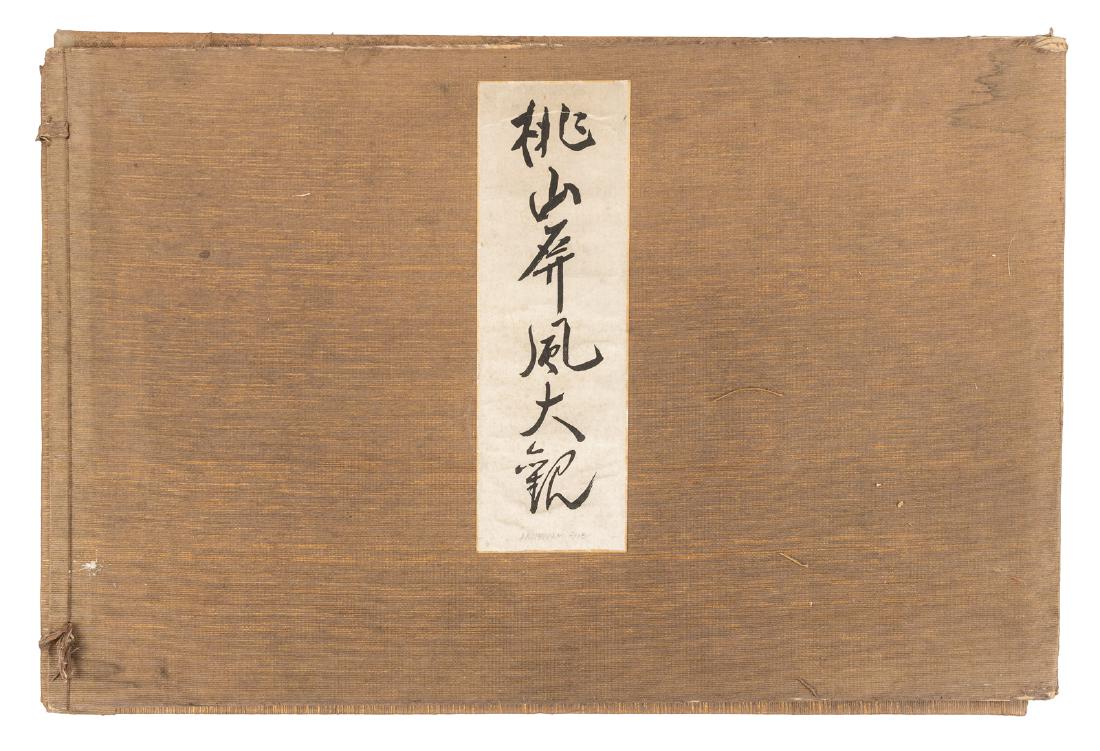 桃山屏風大観